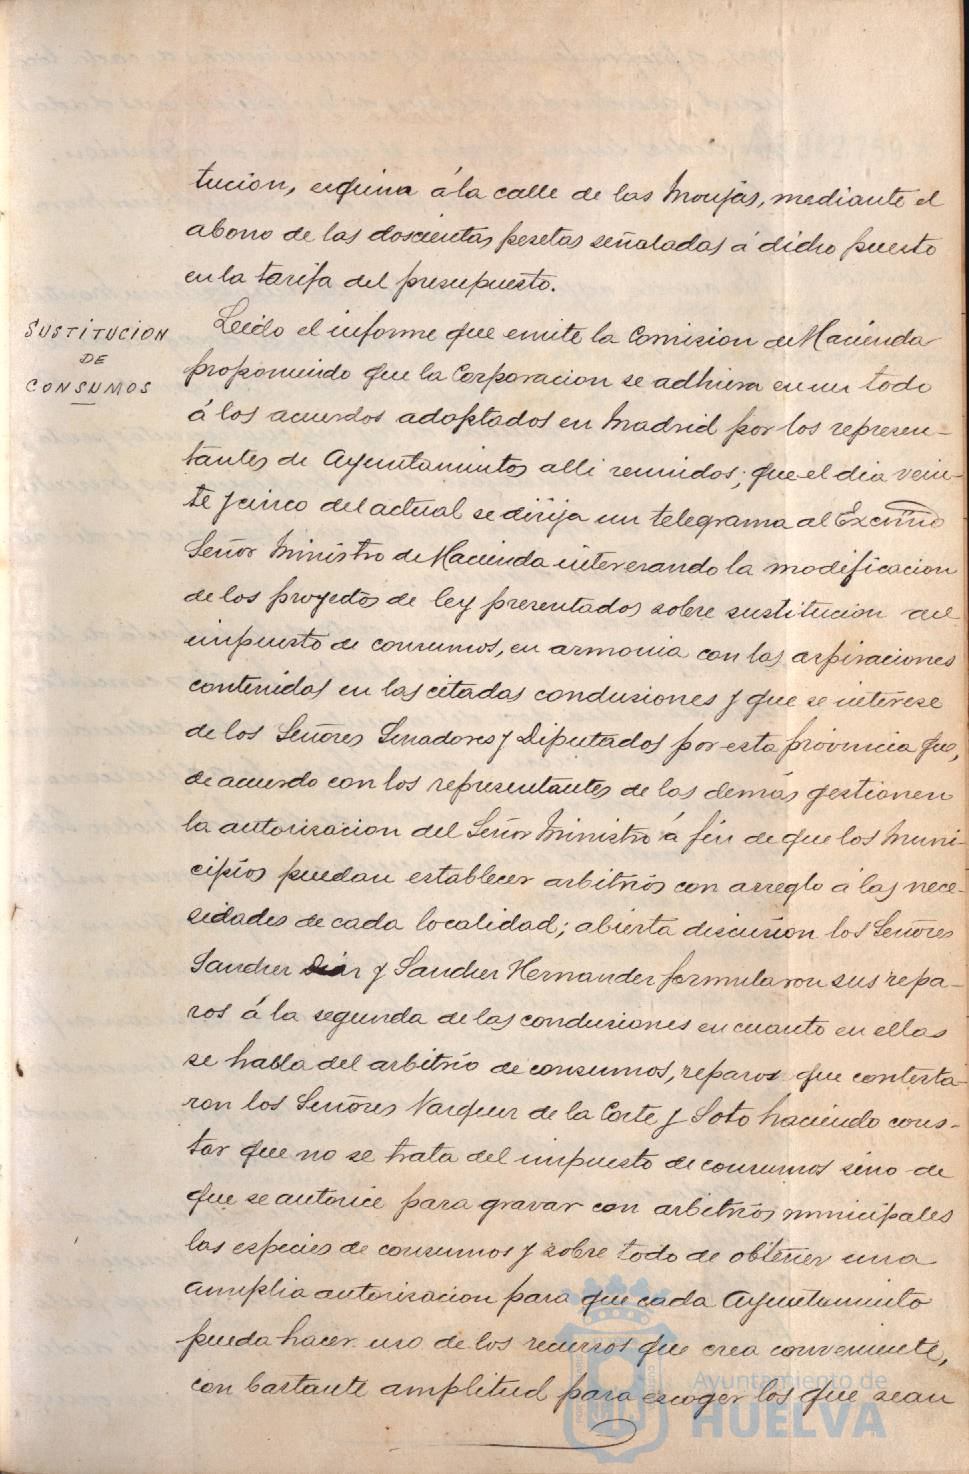 tucion, esquina á la calle de las Monjas, mediante el
abono de las doscientas pesetas señaladas á dicho puesto
en la tarifa del presupuesto.
SUSTITUCION
DE
CONSUMOS
Leido el informe que emite la Comision de Hacienda
proponiendo que la Corporacion se adhiera en un todo
á los acuerdos adoptados en Madrid por los represen-
tantes de Ayuntamientos alli reunidos; que el dia vein-
te y cinco del actual se dirija un telegrama al Excmo
Señor Ministro de Hacienda interesando la modificacion
de los proyectos de ley presentados sobre sustitucion del
impuesto de consumos, en armonia con las aspiraciones
contenidas en las citadas conclusiones y que se interese
de los Señores Senadores y Diputados por esta provincia que,
de acuerdo con los representantes de las demás gestionen
la autorizacion del Señor Ministro á fin de que los Muni-
cipios puedan establecer arbitrios con arreglo á las nece-
sidades de cada localidad; abierta discusion los Señores
Sanchez Diaz y Sanchez Hernandez formularon sus repa-
ros á la segunda de las conclusiones en cuanto en ellas
se habla del arbitrio de consumos, reparos que contesta-
ron los Señores Vazquez de la Corte y Soto haciendo cons-
tar que no se trata del impuesto de consumos sino de
que se autorice para gravar con arbitrios municipales
las especies de consumos y sobre todo de obtener una
amplia autorizacion para que cada Ayuntamiento
pueda hacer uso de los recursos que crea conveniente,
con bastante amplitud para escoger los que sean
Ayuntamiento de
HUELVA